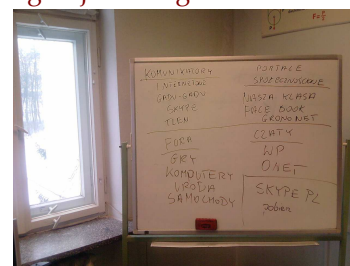 KOMUNIKATORY
INTERNETOWE
GADU-GADU
SKYPE
TLEN
PORTALE
SPOŁECZNOŚCIOWE
NASZA KLASA
FACE BOOK
GRONO NET
FORA
GRY
KOMPUTERY
URODA
SAMOCHODY
CZATY
WP
ONET
SKYPE PL
pobierz